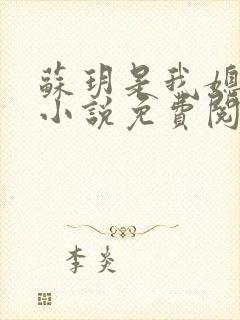 蘇玥是我媳
小說免費閱
李炎